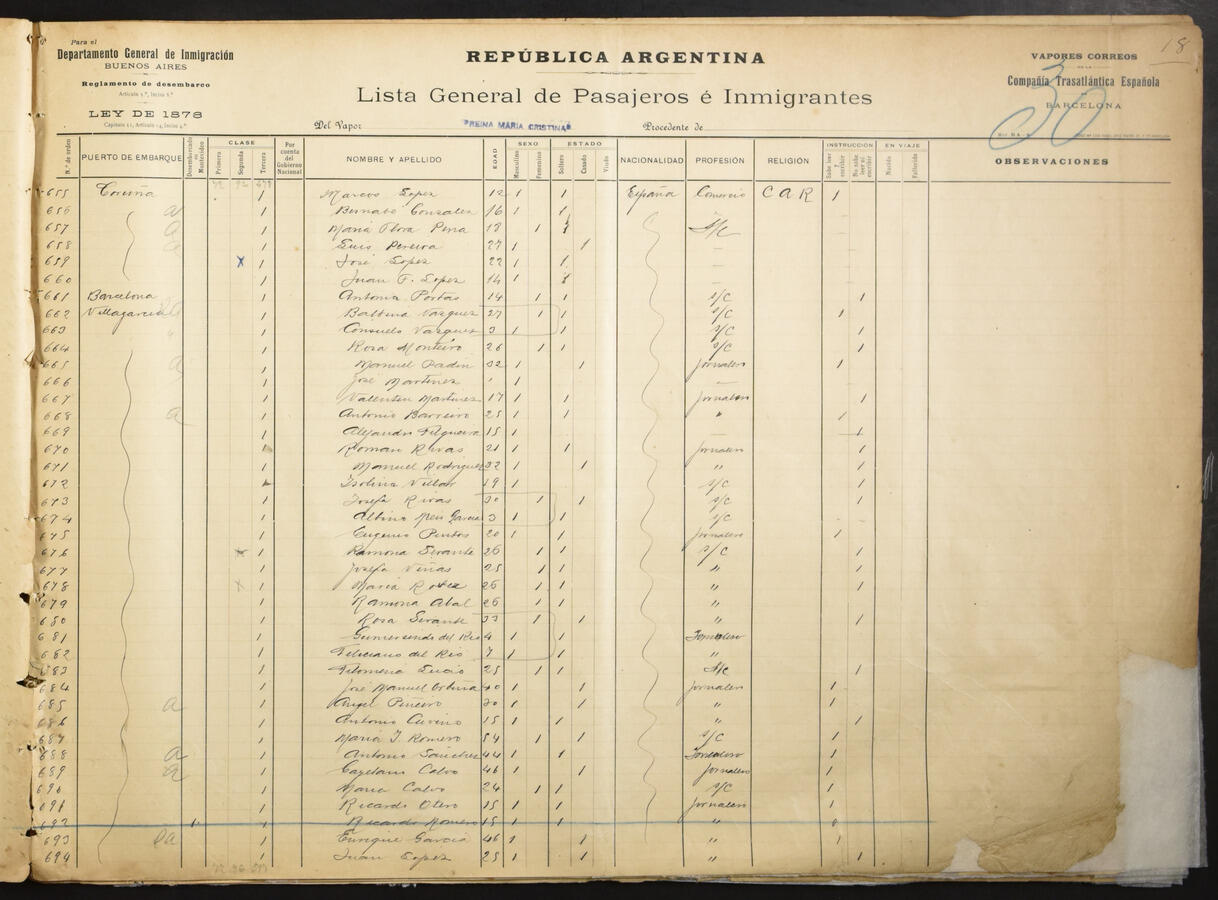 18
Para el
Departamento General de Inmigración
BUENOS AIRES
Reglamento de desembarco
Artículo 5.º, Inciso 8.º
LEY DE 1878
REPÚBLICA ARGENTINA
Lista General de Pasajeros é Inmigrantes
Del Vapor "REINA MARIA CRISTINA" Procedente de
VAPORES CORREOS
DE LA
Compañía Trasatlántica Española
BARCELONA
30
N.º de orden PUERTO DE EMBARQUE Desembarcado en Montevideo CLASE Primera Segunda Tercera Por cuenta del Gobierno Nacional NOMBRE Y APELLIDO EDAD SEXO Masculino Femenino ESTADO Soltero Casado Viudo NACIONALIDAD PROFESIÓN RELIGIÓN INSTRUCCIÓN Sabe leer y escribir No sabe leer ni escribir EN VIAJE Nacido Fallecido OBSERVACIONES
655 Coruña 1 Marcos Lopez 12 1 1 España Comercio C A R 1
656 a 1 Bernabé Gonzalez 16 1 1
657 a 1 Maria Flora Pena 18 1 1 S/C
658 a 1 Luis Pereira 27 1 1
659 x 1 José Lopez 22 1 1
660 1 Juan F. Lopez 14 1 1
661 Barcelona 1 Antonia Portas 14 1 1 s/C 1
662 Villagarcia 1 Balbina Vazquez 27 1 1 s/C 1
663 1 Consuelo Vazquez 3 1 1 s/C 1
664 1 Rosa Monteiro 26 1 1 s/C 1
665 a 1 Manuel Padin 32 1 1 Jornalero 1
666 1 José Martinez 1 1
667 1 Valentin Martinez 17 1 1 Jornalero 1
668 a 1 Antonio Barreiro 25 1 1 " 1
669 1 Alejandro Filgueira 15 1 1
670 1 Roman Rivas 21 1 1 Jornalero 1
671 1 Manuel Rodriguez 32 1 1 " 1
672 1 Isolina Villar 19 1 s/C 1
673 1 Josefa Rivas 30 1 1 s/C 1
674 1 Albino Garcia 3 1 1 s/C
675 1 Eugenio Pintos 20 1 1 Jornalero 1
676 x 1 Ramona Serante 26 1 1 s/C 1
677 1 Josefa Viñas 25 1 1 " 1
678 x 1 Maria 26 1 1 " 1
679 1 Ramona Abal 26 1 1 "
680 1 Rosa Serante 33 1 1 " 1
681 1 Gumersindo del Rio 4 1 1 Jornalero
682 1 Feliciano del Rio 7 1 1 "
683 1 Filomena 25 1 1 S/C 1
684 1 José Manuel 40 1 1 Jornalero 1
685 a 1 Angel Piñeiro 30 1 1 " 1
686 1 Antonio 15 1 1 " 1
687 1 Maria J. Romero 54 1 1 s/C 1
688 a 1 Antonio Sanchez 44 1 1 Jornalero 1
689 a 1 Cayetano Calvo 46 1 1 Jornalero 1
690 1 Maria Calvo 24 1 1 s/C 1
691 1 Ricardo Otero 15 1 1 Jornalero 1
692 1 Ricardo Romero 15 1 1 "
693 1 Enrique Garcia 46 1 1 " 1
694 1 Juan Lopez 25 1 1 " 1